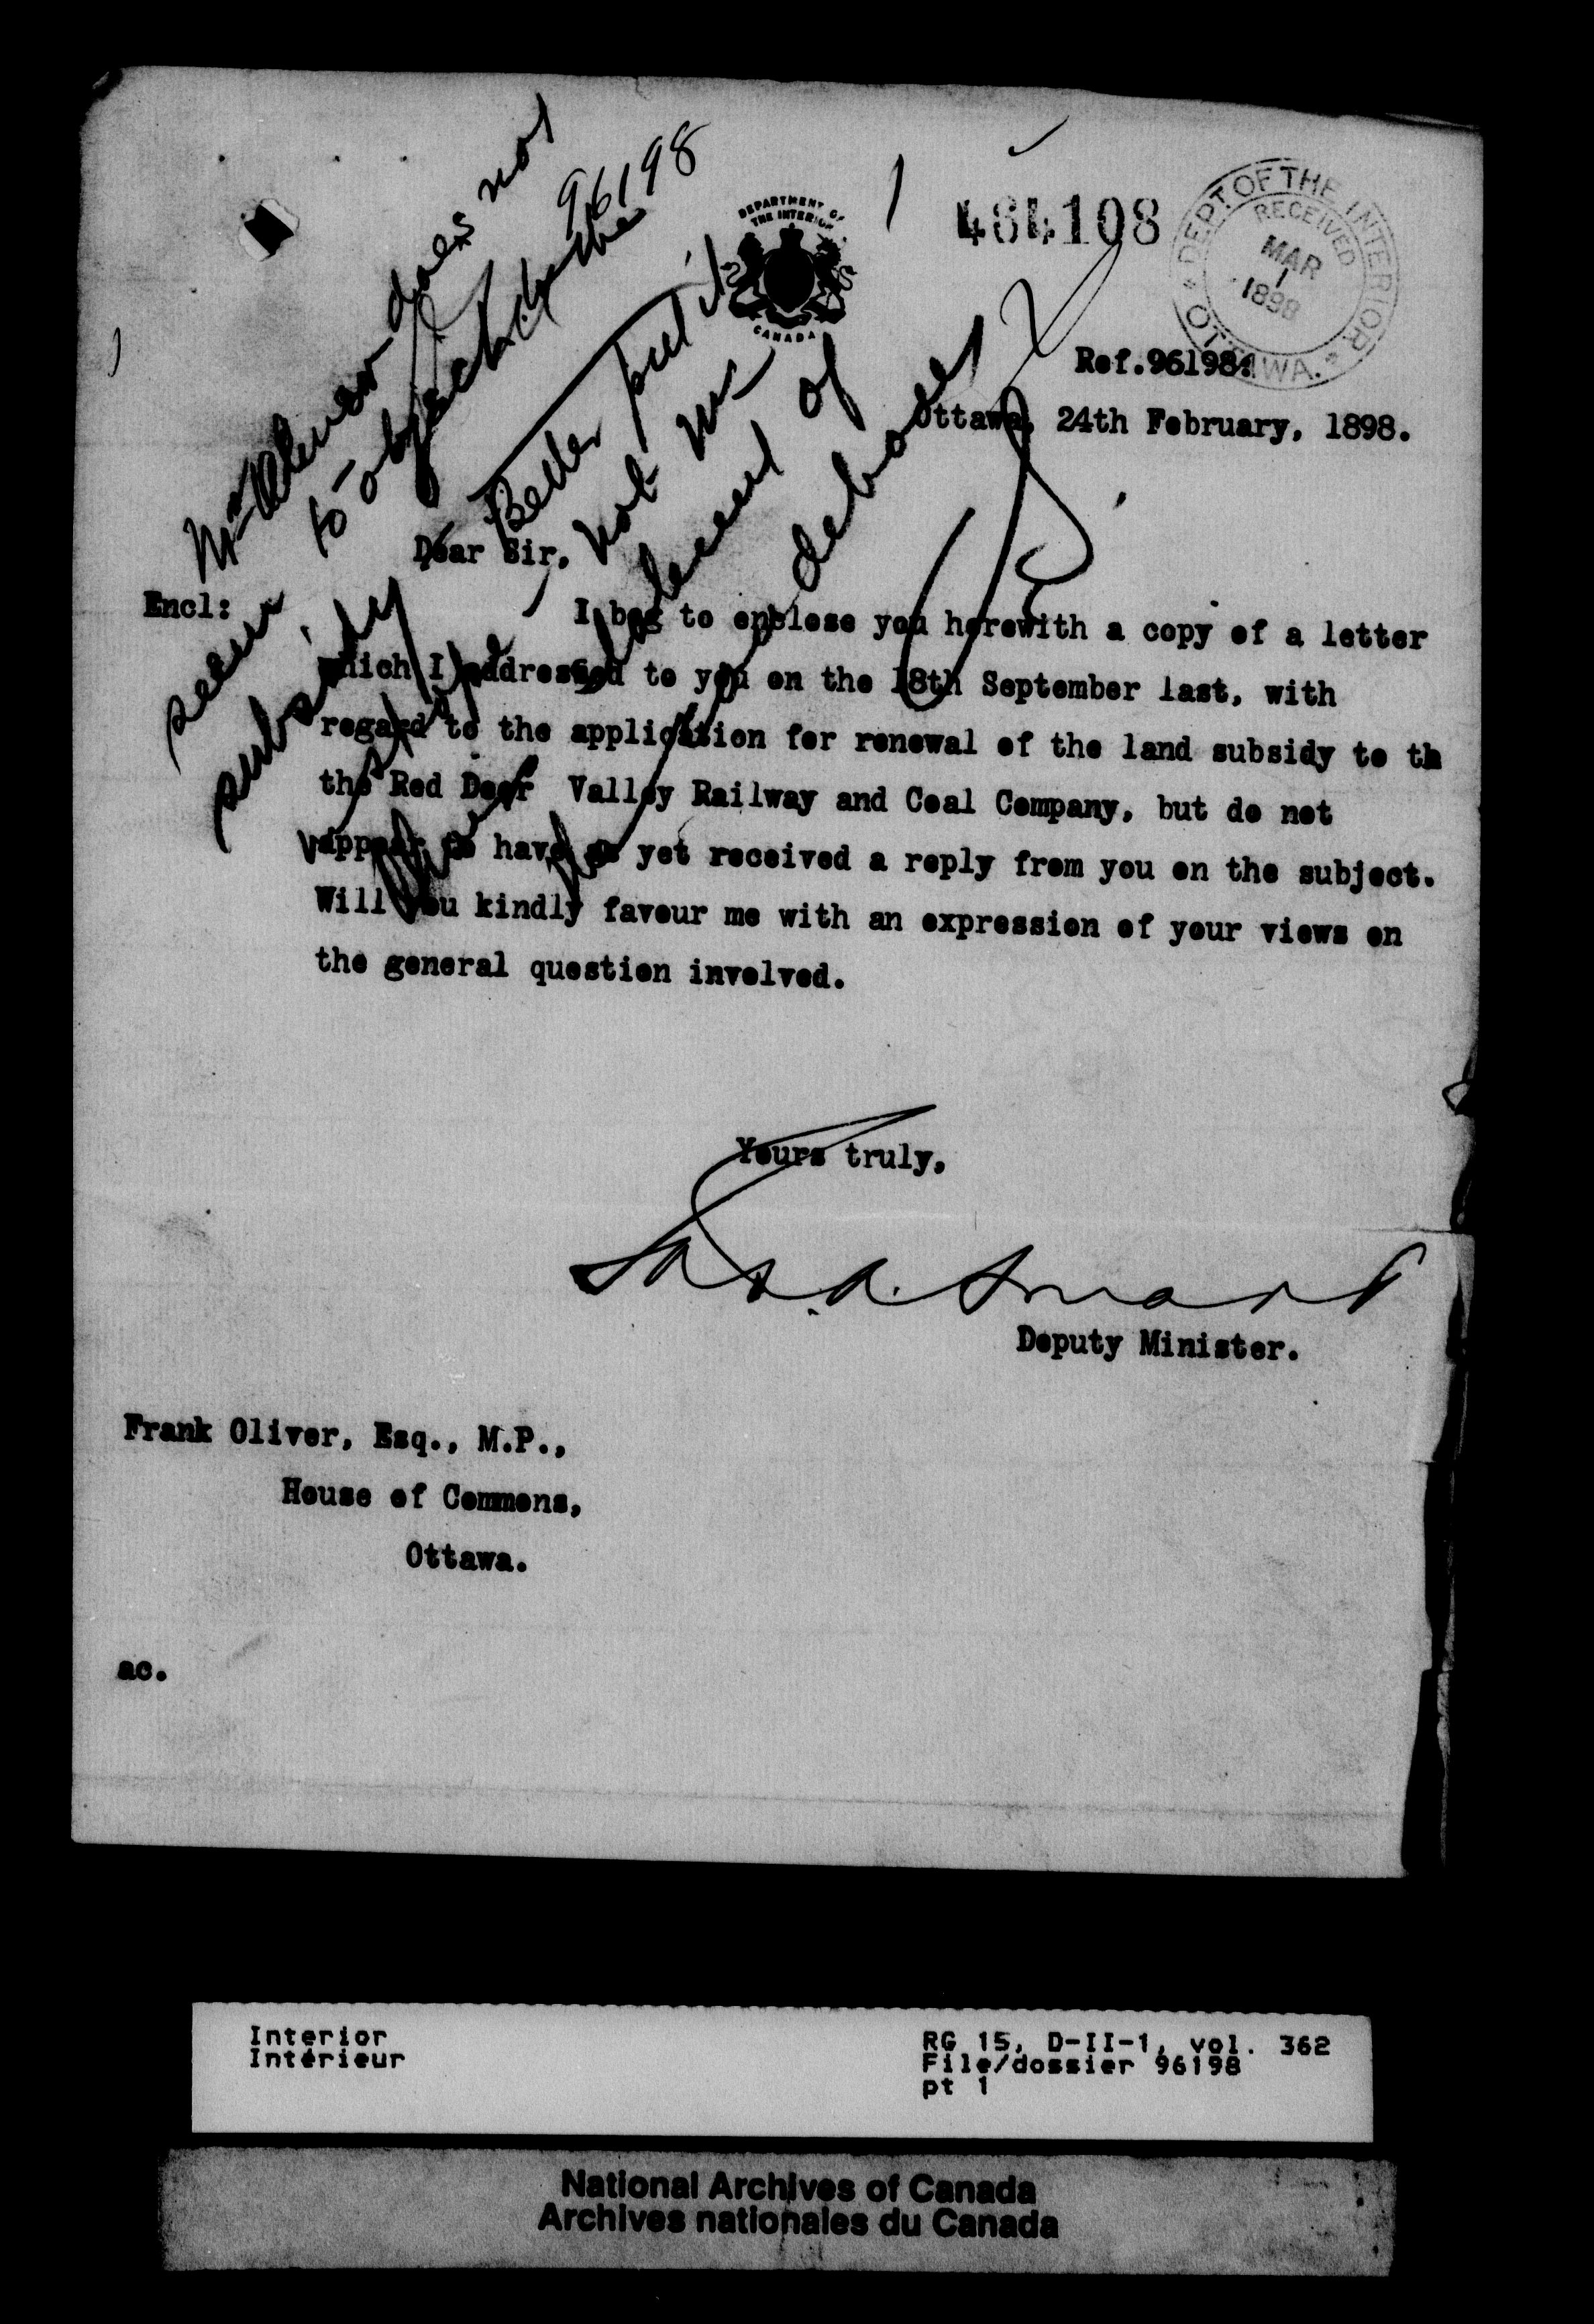 96198
Mr Oliver does not
seem to object to the
subsidy
Better put it
not in
of
debate
DEPARTMENT OF
THE INTERIOR
CANADA
484108
DEPT. OF THE INTERIOR
RECEIVED
MAR
1
1898
OTTAWA.
Ref.96198.
Ottawa, 24th February, 1898.
Dear Sir,
Encl:
I beg to enclose you herewith a copy of a letter
which I addressed to you on the 18th September last, with
regard to the application for renewal of the land subsidy to th
the Red Deer Valley Railway and Coal Company, but do not
appear to have as yet received a reply from you on the subject.
Will you kindly favour me with an expression of your views on
the general question involved.
Yours truly,
Jas. A. Smart
Deputy Minister.
Frank Oliver, Esq., M.P.,
House of Commons,
Ottawa.
ac.
Interior
Intérieur
RG 15, D-II-1, vol. 362
File/dossier 96198
pt 1
National Archives of Canada
Archives nationales du Canada